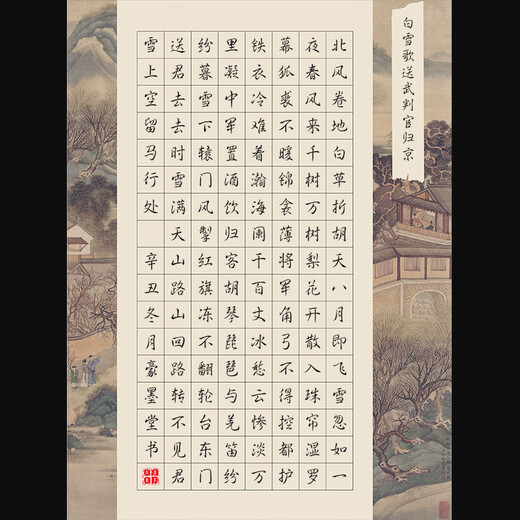 白雪歌送武判官归京
北风卷地白草折胡天八月即飞雪忽如一
夜春风来千树万树梨花开散入珠帘湿罗
幕狐裘不暖锦衾薄将军角弓不得控都护
铁衣冷难着瀚海阑干百丈冰愁云惨淡万
里凝中军置酒饮归客胡琴琵琶与羌笛纷
纷暮雪下辕门风掣红旗冻不翻轮台东门
送君去去时雪满天山路山回路转不见君
雪上空留马行处 辛丑冬月豪墨堂书